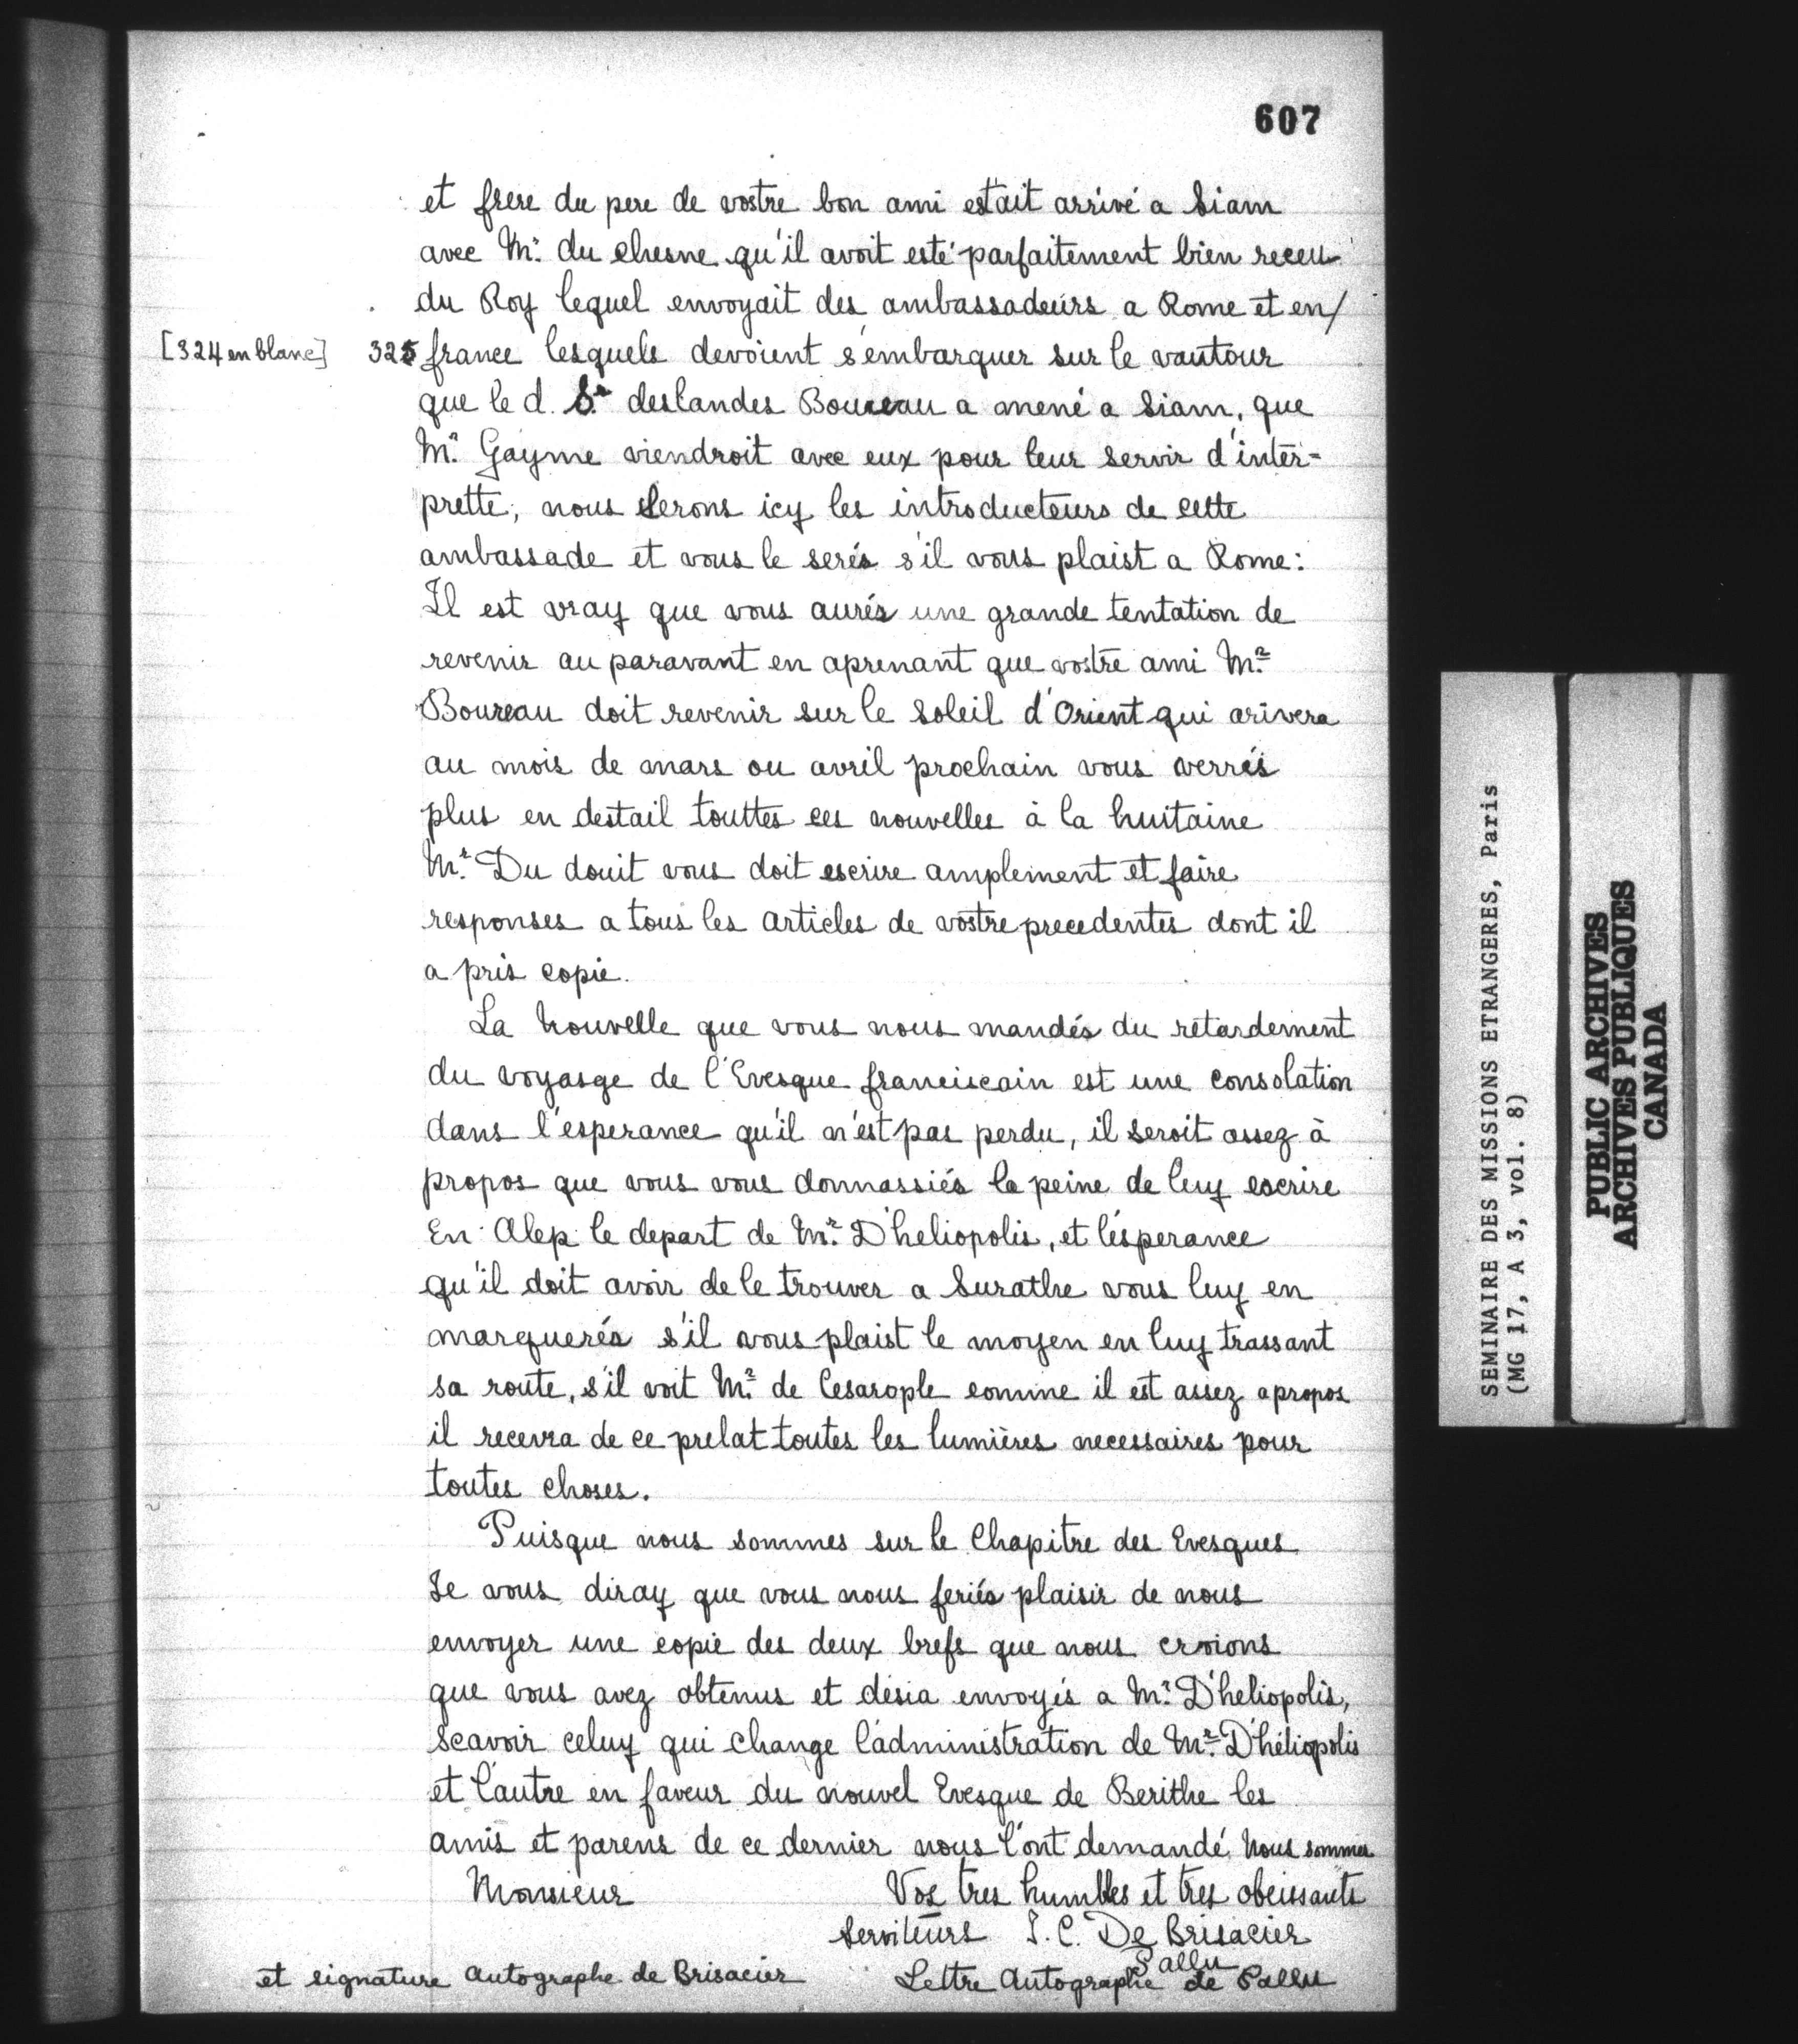 607
et frere du pere de vostre bon ami estait arrivé a Siam
avec Mr. du chesne qu'il avoit esté parfaitement bien receu
du Roy lequel envoyait des ambassadeurs a Rome et en/
[324 en blanc] 325 france lesquels devoient s'embarquer sur le vautour
que le d. Sr. deslandes Boureau a mené a Siam, que
Mr. Gayme viendroit avec eux pour leur servir d'inter=
prette, nous serons icy les introducteurs de cette
ambassade et vous le serés s'il vous plaist a Rome:
Il est vray que vous aurés une grande tentation de
revenir au paravant en aprenant que vostre ami Mr.
Boureau doit revenir sur le soleil d'Orient qui arivera
au mois de mars ou avril prochain vous verrés
plus en destail touttes ces nouvelles à la huitaine
Mr. Du douit vous doit escrire amplement et faire
responses a tous les articles de vostre precedentes dont il
a pris copie.
La nouvelle que vous nous mandés du retardement
du voyasge de l'Evesque franciscain est une consolation
dans l'esperance qu'il n'est pas perdu, il seroit assez à
propos que vous vous donnassiés la peine de luy escrire
En Alep le depart de Mr. D'heliopolis, et l'esperance
qu'il doit avoir de le trouver a Surathe vous luy en
marquerés s'il vous plaist le moyen en luy trassant
sa route, s'il voit Mr. de Cesarople comme il est assez apropos
il recevra de ce prelat toutes les lumières necessaires pour
toutes choses.
Puisque nous sommes sur le Chapitre des Evesques
Je vous diray que vous nous feriés plaisir de nous
envoyer une copie des deux brefs que nous croions
que vous avez obtenus et desia envoyés a Mr. D'heliopolis,
scavoir celuy qui change l'administration de Mr. D'héliopolis
et l'autre en faveur du nouvel Evesque de Berithe les
amis et parens de ce dernier nous l'ont demandé Nous sommes
Monsieur Vos tres humbles et tres obeissants
serviteurs J. C. De Brisacier
Pallu
et signature autographe de Brisacier Lettre Autographe de Pallu
SEMINAIRE DES MISSIONS ETRANGERES, Paris
(MG 17, A 3, vol. 8)
PUBLIC ARCHIVES
ARCHIVES PUBLIQUES
CANADA